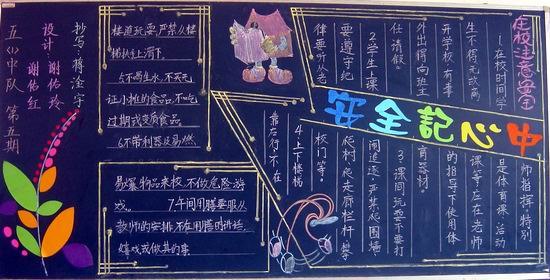 安全記心中
在校注意安全
1、在校时间学
生不得无故离
开学校,有事
外出得向班主
任请假。
2学生上课
要遵守纪
律要听从老
师指挥,特别
是体育课、活动
课等,应在老师
的指导下使用体
育器材。
3、课间玩耍不要打
闹追逐,严禁爬围墙
爬树,爬走廊栏杆,攀
校门等。
4上下楼梯
靠右行,不在
楼道玩耍,严禁从楼
梯扶手上滑下。
5不喝生水,不买无
证小摊的食品,不吃
过期或变质食品。
6不带利器及易燃
易爆物品来校,不做危险游
戏。 7午间用膳要服从
教师的安排,不在用膳时讲话,
嬉戏或做其他事
抄写:蒋淦宇
设计 谢佑玲
谢佑红
五(1)中队 第五期